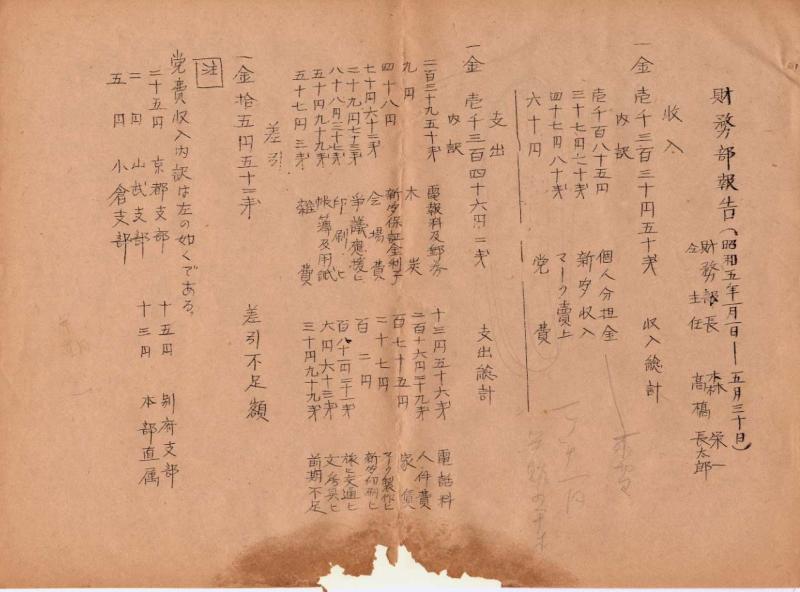 財務部報告(昭和五年一月一日――五月三十日)
財務部長 森栄一
仝主任 高橋長太郎
収入
一金壱千三百三十円五十銭 収入総計
内訳
壱千百八十五円 個人分担金
三十七円七十銭 新労収入
四十七円八十銭 マーク売上
六十円 党費
支出
一金壱千三百四十六円〇二銭 支出総計
内訳
二百三十九円五十銭 電報料及郵券 十三円五十六銭 電話料
九円 木炭 二百十六円三十九銭 人件費
四十八円 新労保証金利子 百七十五円 家賃
七十円六十三銭 会場費 二十七円 マーク製作ヒ
二十九円七十三銭 争議応援ヒ 百二円 新労印刷ヒ
八十八円三十七銭 印刷ヒ 百八十一円二十一銭 旅ヒ交通ヒ
五十円九十九銭 帳簿及用紙 六円六十三銭 文房具ヒ
五十七円〇三銭 雑費 三十円九十九銭 前期不足
差引
一金拾五円五十二銭 差引不足額
注
党費収入内訳は左の如くである。
二十五円 京都支部 十五円 別府支部
二円 山武支部 十三円 本部直属
五円 小倉支部